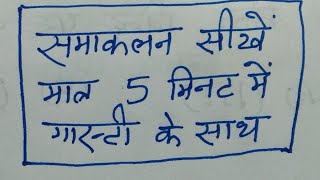 समाकलन सीखें
मात्र 5 मिनट में
गारन्टी के साथ